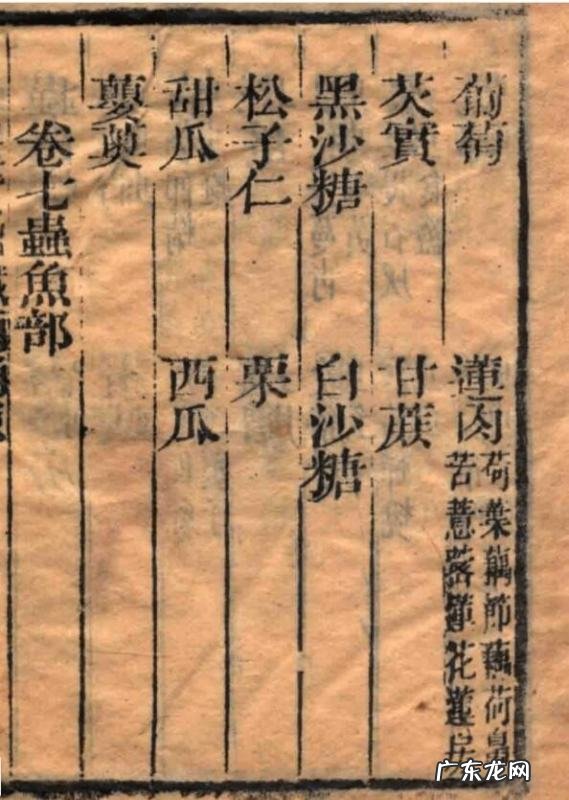 葡萄　蓮肉
荷葉藕節藕荷鼻
苦薏　花蓮
芡實　甘蔗
黑沙糖　白沙糖
松子仁　栗
甜瓜　西瓜
蘡薁
卷七蟲魚部
广东龙网